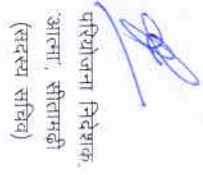 परियोजना निदेशक,
'आत्मा' सीतामढ़ी
(सदस्य सचिव)